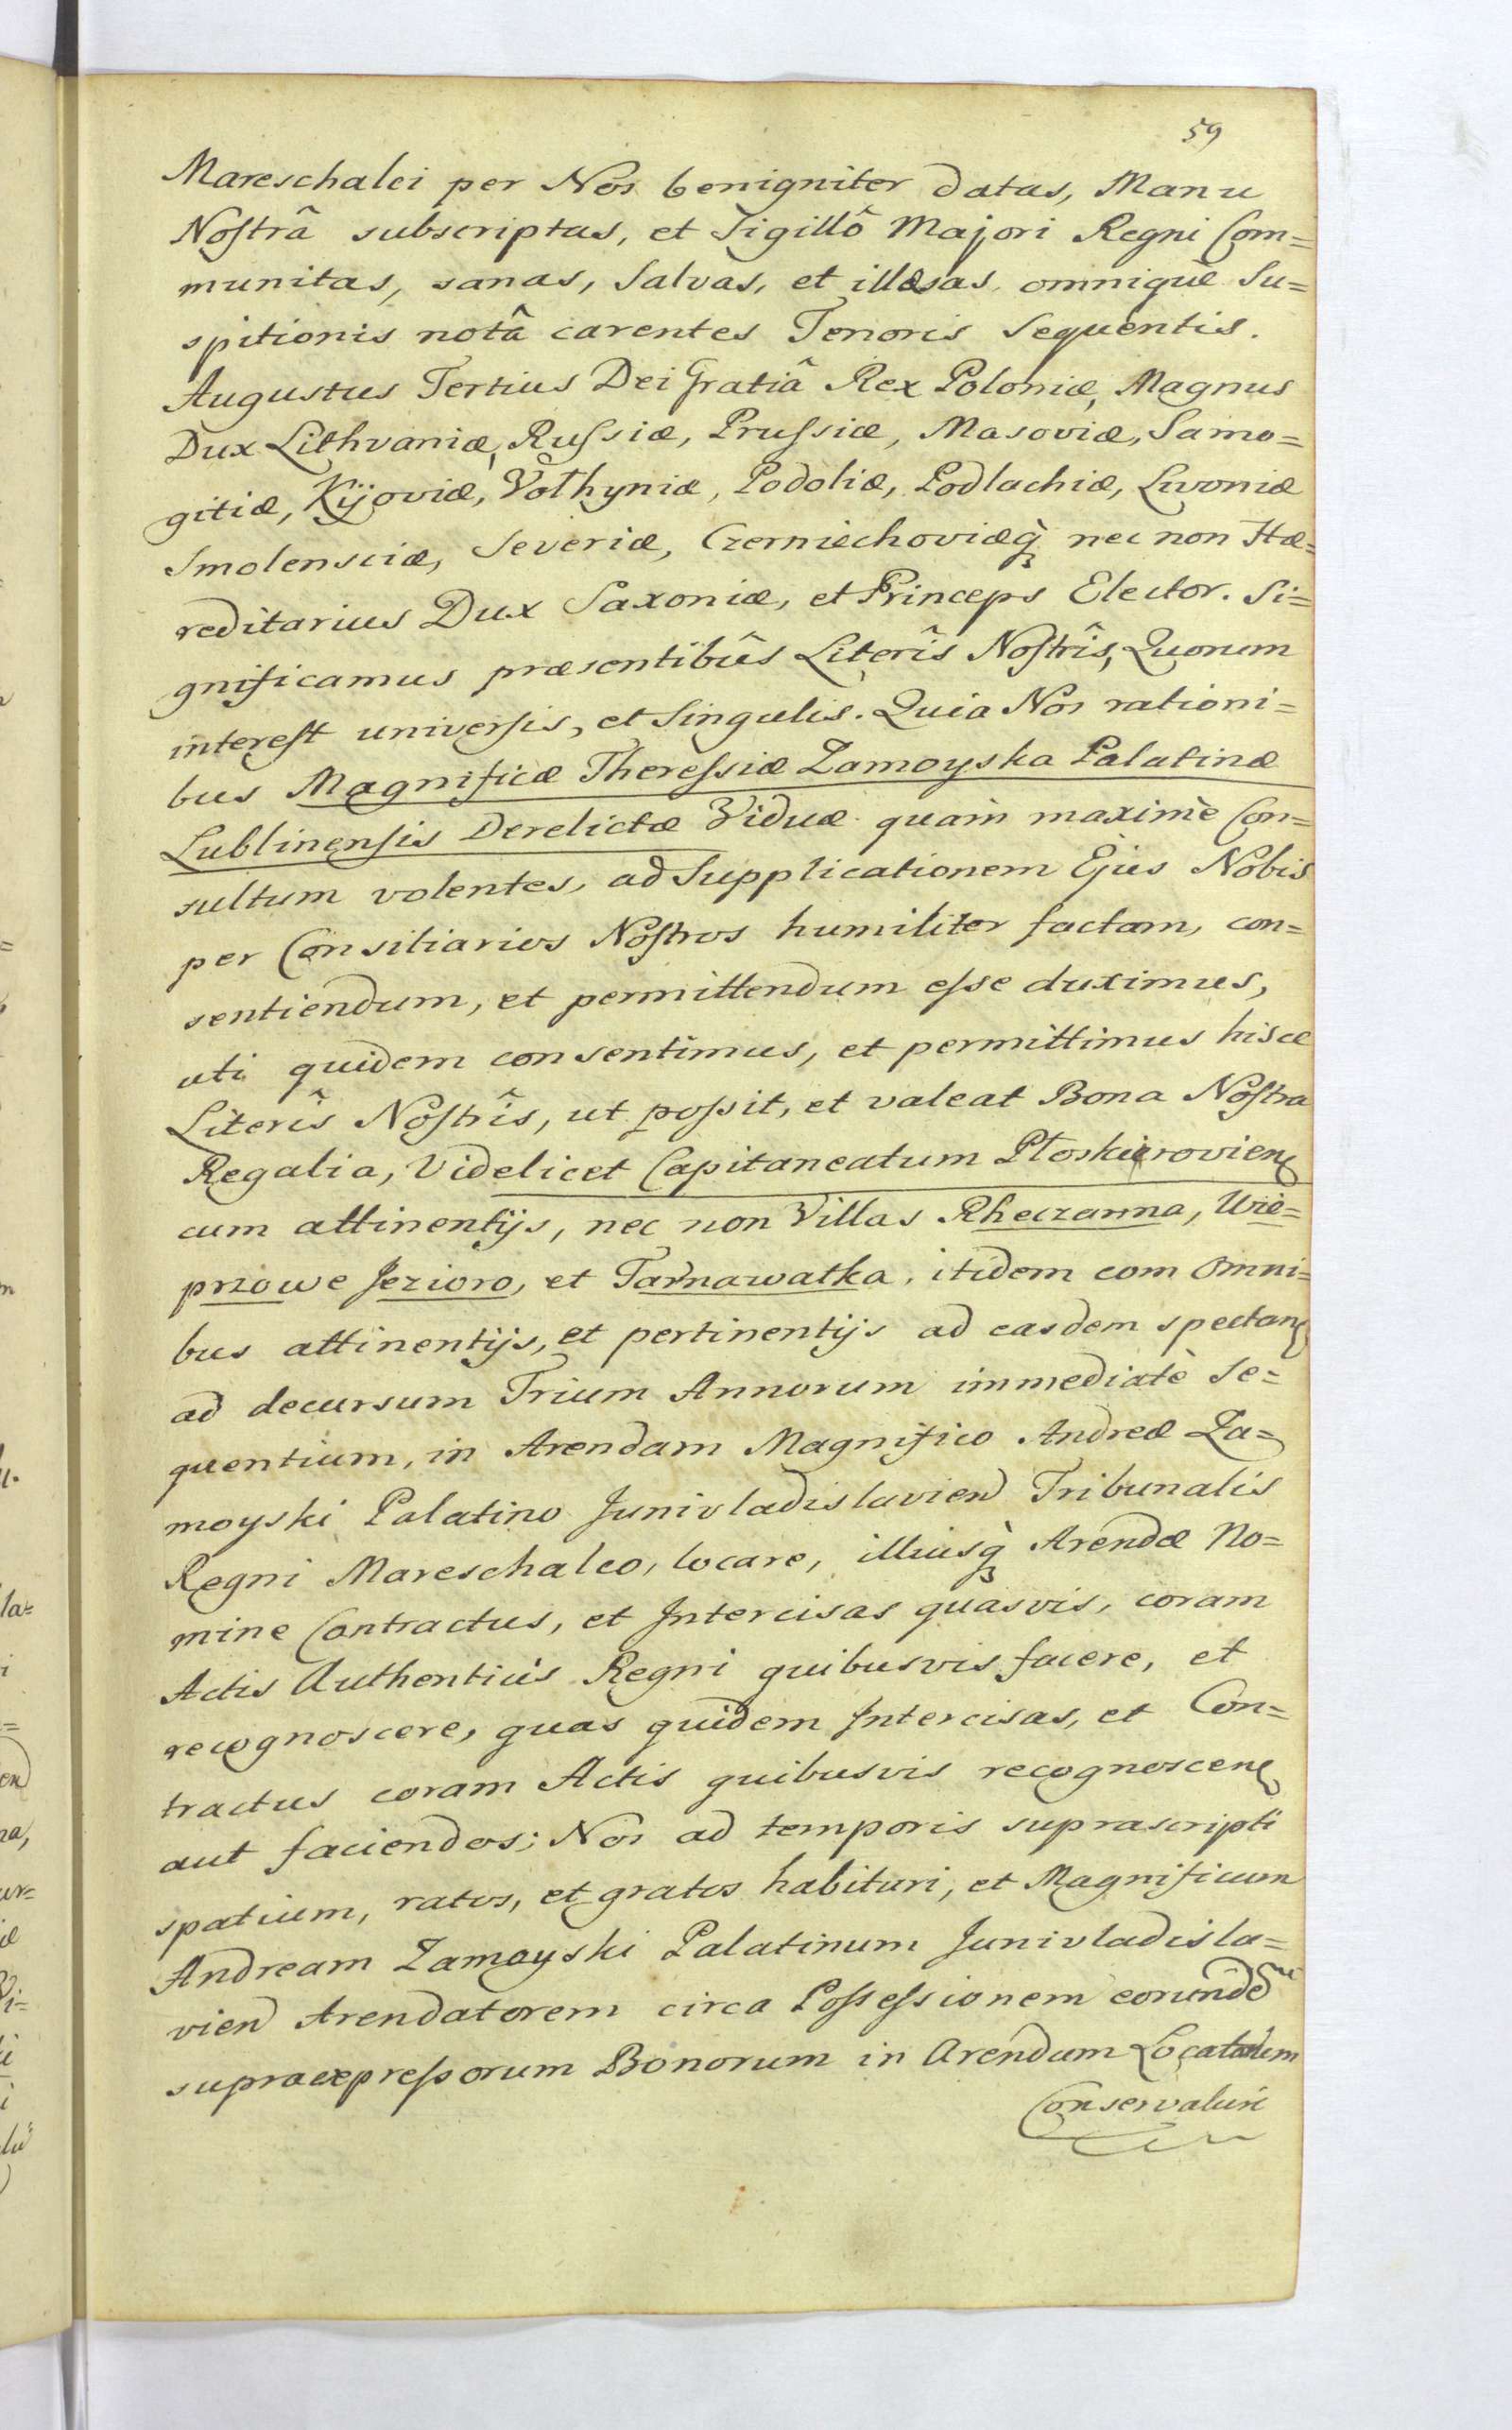 59
Mareschalci per Nos benigniter datas, Manu
Nostrâ subscriptas, et Sigillô Majori Regni Com=
munitas, sanas, Salvas, et illæsas, omniquè Su=
spitionis notâ carentes Tenoris Sequentis.
Augustus Tertius Dei Gratiâ Rex Poloniæ, Magnus
Dux Lithvaniæ, Russiæ, Prussiæ, Masoviæ, Samo=
gitiæ, Kijoviæ, Volhyniæ, Podoliæ, Podlachiæ, Livoniæ
Smolensciæ, Severiæ, Czerniechoviæq̀ nec non Hæ=
reditarius Dux Saxoniæ, et Princeps Elector. Si=
gnificamus præsentibûs Literîs Nostrîs, Quorum
interest universis, et Singulis. Quia Nos rationi=
bus Magnificæ Theressiæ Zamoyska Palatinæ
Lublinensis Derelictæ Viduæ quàm maximè Con=
sultum volentes, ad Supplicationem Ejus Nobis
per Consiliarios Nostros humiliter factam, con=
sentiendum, et permittendum esse duximus,
uti quidem consentimus, et permittimus hisce
Literîs Nostrîs, ut possit, et valeat Bona Nostra
Regalia, Videlicet Capitaneatum Ploskirovien
cum attinentijs, nec non Villas Rheczanna, Wie=
przowe Jezioro, et Tarnawatka, itidem com Omni=
bus attinentijs, et pertinentijs ad easdem spectan
ad decursum Trium Annorum immediatè Se=
quentium, in Arendam Magnifico Andreæ Za=
moyski Palatino Junivladislavien Tribunalis
Regni Mareschalco, locare, illiusq̀ Arendæ No=
mine Contractus, et Intercisas quasvis, coram
Actis Authenticis Regni quibusvis facere, et
recognoscere, quas quidem Intercisas, et Con=
tractus coram Actis quibusvis recognoscen
aut faciendos; Nos ad temporis suprascripti
spatium, ratos, et gratos habituri, et Magnificum
Andream Zamoyski Palatinum Junivladisla=
vien Arendatorem circa Possessionem eorundem
supraexpressorum Bonorum in Arendam Locatorum
Conservaturi